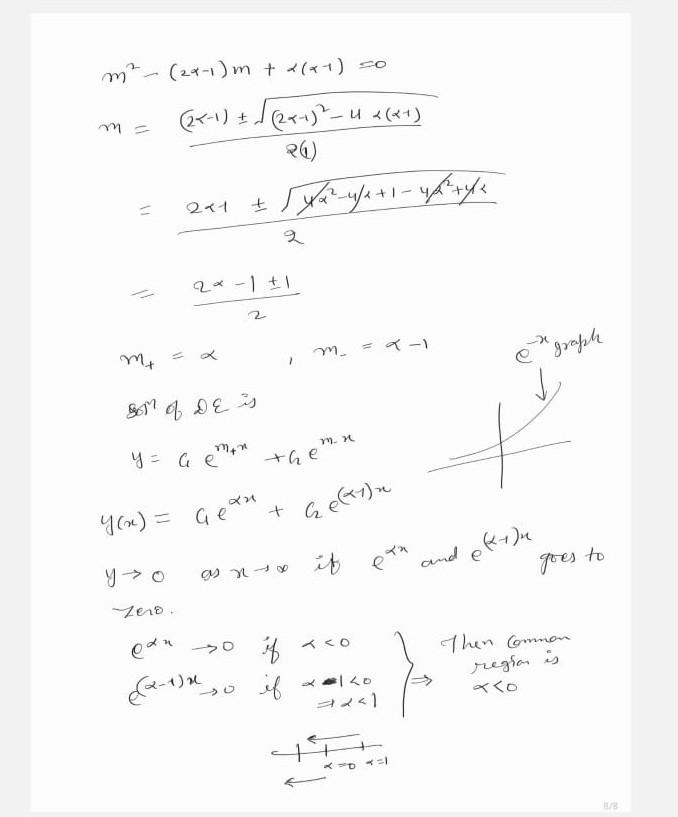 m² - (2α-1)m + α(α-1) = 0
m = (2α-1) ± √((2α-1)² - 4α(α-1)) / 2(1)
= 2α-1 ± √(4α² - 4α + 1 - 4α² + 4α) / 2
= 2α - 1 ± 1 / 2
m₊ = α , m₋ = α - 1
e^-x graph
Solⁿ of DE is
y = C₁ e^m₊x + C₂ e^m₋x
y(x) = C₁ e^αx + C₂ e^(α-1)x
y → 0 as x → ∞ if e^αx and e^(α-1)x goes to
zero.
e^αx → 0 if α < 0
e^(α-1)x → 0 if α - 1 < 0
⇒ α < 1
⇒ Then Common
region is
α < 0
α=0 α=1
8/8